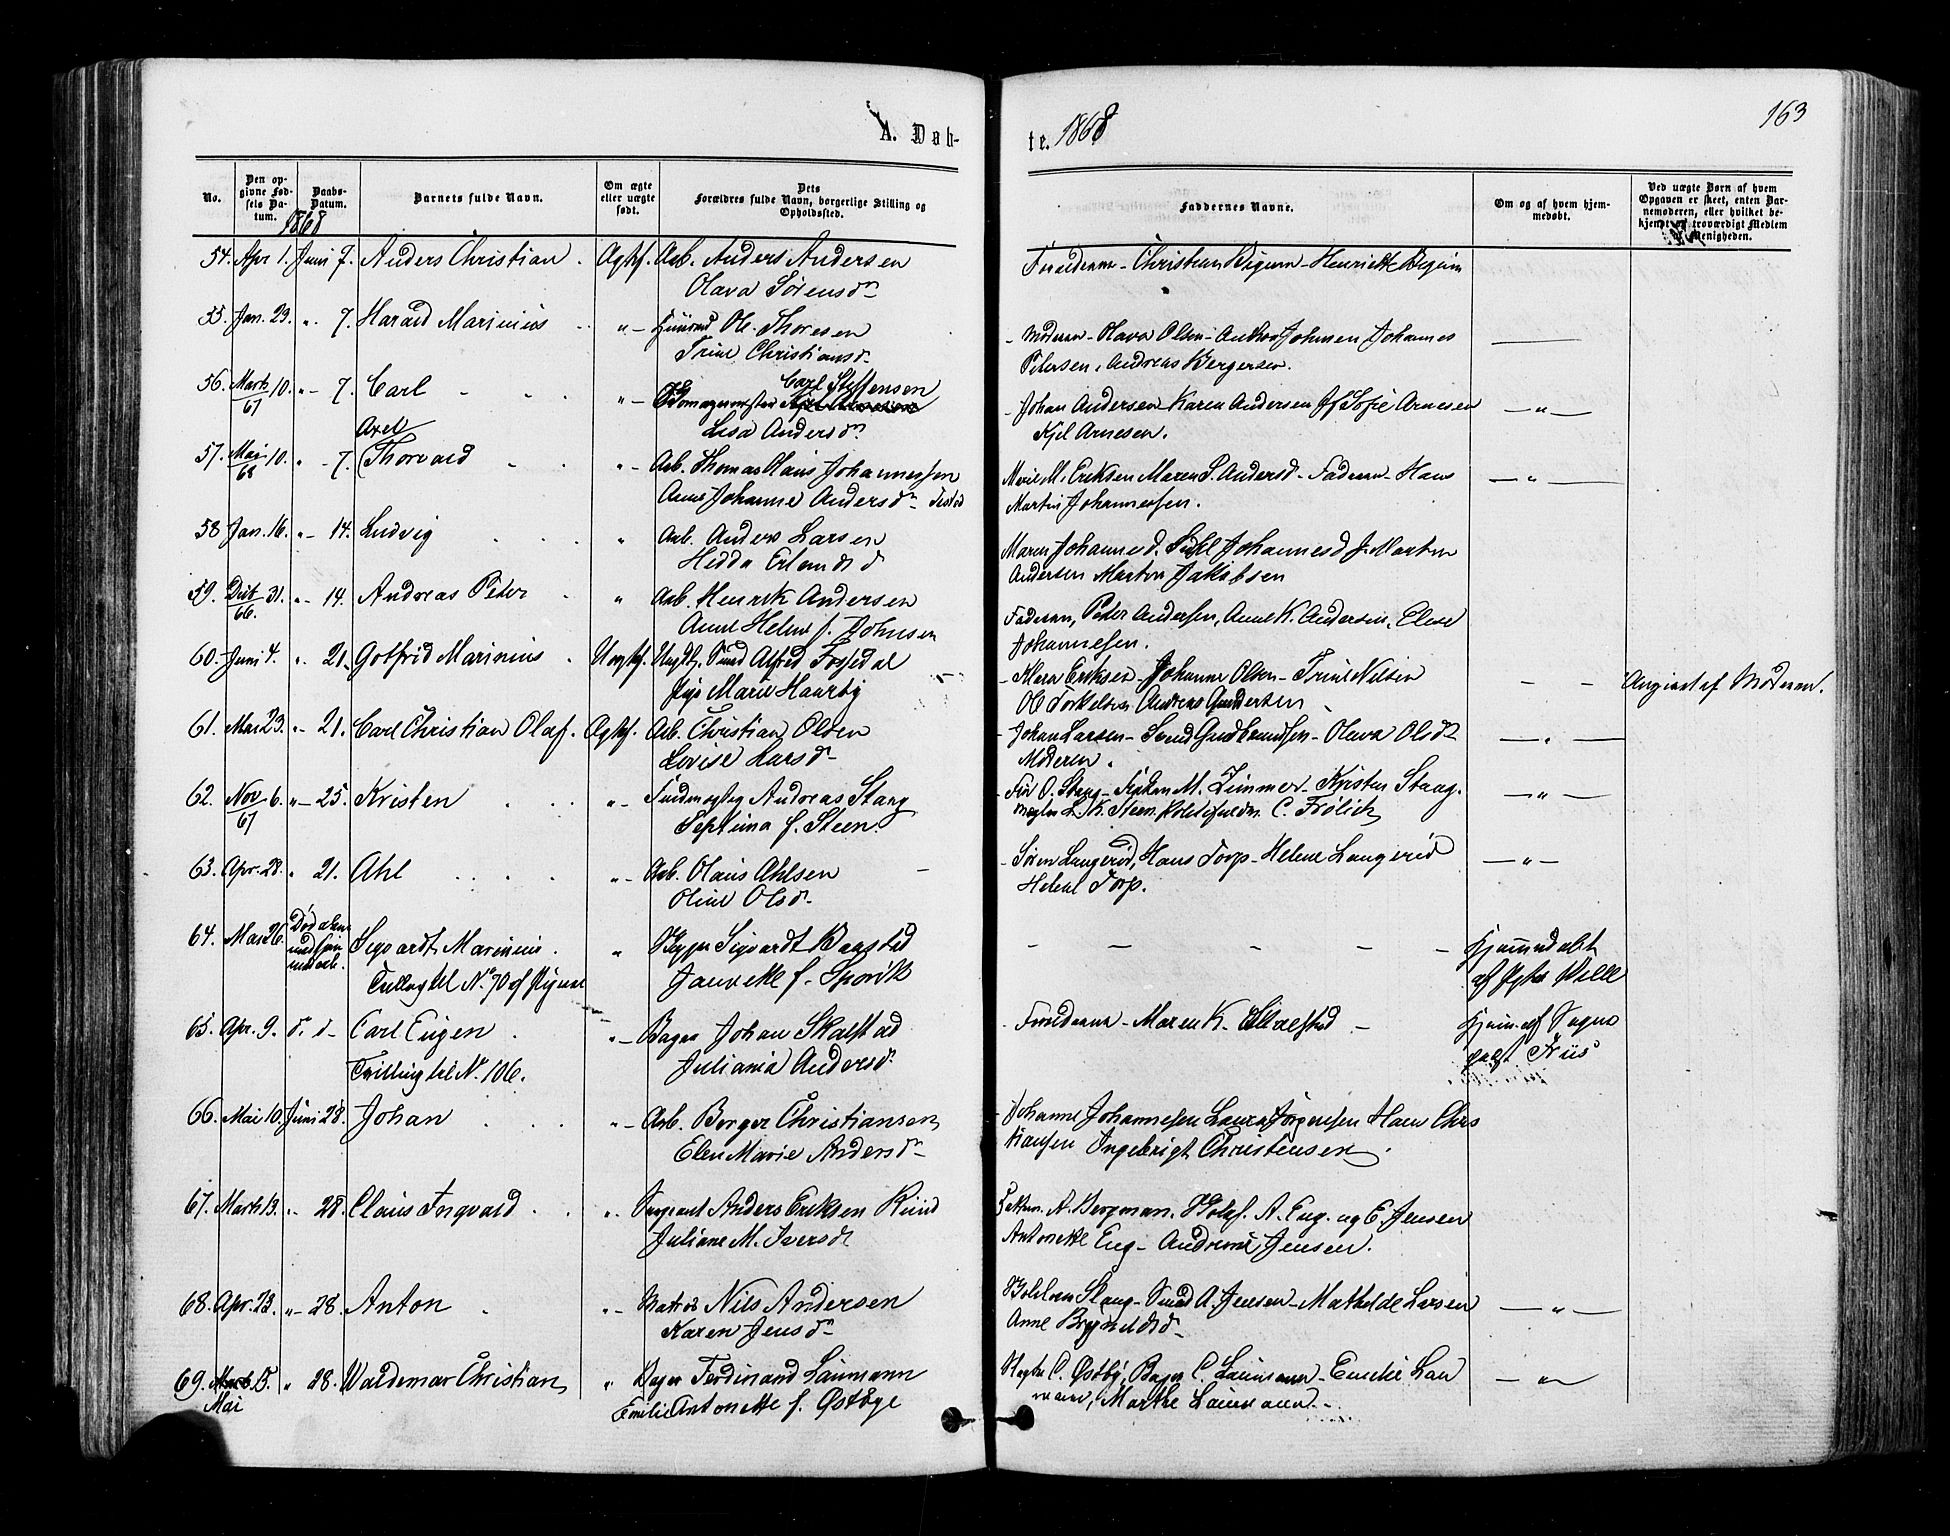 A. Døb-
te. 1868
163
No.
Den opgivne Fødsels Datum.
Daabs-Datum.
Barnets fulde Navn.
Om ægte eller uægte født.
Dets Forældres fulde Navn, borgerlige Stilling og Opholdssted.
Faddernes Navne.
Om og af hvem hjemmedøbt.
Ved uægte Børn af hvem Opgaven er skeet, enten Barnemoderen, eller hvilket bekjendt og troværdigt Medlem af Menigheden.
1868
54. Apr 1. Juni 7. Anders Christian. Ægtf. Arb. Anders Andersen
Olava Sørensdr
Christian Bigum - Henriette Bigum
55. Jan. 29. " 7. Harald Marinius " Ole Thoresen
Trine Christiansdr
Moderen - Olava Olsen - Johnsen Johannes
Petersen, Andreas Bergersen.
56. Marts 10. 67 " 7. Carl " Carl Steffensen
Lisa Andersdr.
Johan Andersen Karen Andersen Sofie Arnesen — " —
Kjel Arnesen.
57. Mai 10. 68 " 7. Axel
Thorvald " Arb. Thomas Hans Johannessen
Anne Johanne Andersdr
M. Eriksen Maren S. Andersd - Faderen Hans — " —
Martin Johannessen.
58 Jan. 16. " 14. Ludvig " Arb. Anders Larsen
Hedda Erlandsd
Maren Johannesd. Johannesd J. Morten
Andersen Morten Jakobsen
59. 31. 66. " 14. Andreas Peter " Arb. Henrik Andersen
Anne Helene f. Johnsen
Faderen, Peter Andersen, Anne K. Andersen, Elise
Johannesen.
60. Juni 4. " 21. Gotfrid Marinius. Uægtf. Alfred Fossedal
Marie Haarby
Eriksen - Johanne Olsen - Trine Nilsen — — Angivet af Moderen.
Ole Torkelsen Andreas Gundersen
61. Mai 23. " 21. Carl Christian Olaf. Ægtf. Arb. Christian Olsen
Lovise Larsdr
Johan Larsen - Svend Gulbrandsen - Olava Olsdr — " —
Moderen.
62. Nov 6. 67 " 25. Kristen " Andreas Stang
Septima f. Steen.
O. Stang - M. Zimmer - Kristen Stang. — " —
Steen, C. Frølich
63. Apr. 28. " 21. Ahl " Arb. Olaus Ahlsen
Oline Olsdr.
Søren Langerød, Hans Torp - Helene Langerød — " —
Helene Torp.
64. Mai 26. Sigvardt Marinius. " Sigvardt Baastad
Tvilling til No. 70 af
— — — — — Hjemmedøbt
65. Apr. 9. d. d. Carl Eugen. " Bager Johan Skolstad
Tvilling til No. 106. Juliania Andersdr
Maren K. — Hjem. af Sogne
Friis
66. Mai 10. Juni 28. Johan " Arb. Borger Christiansen
Elen Marie Andersdr
Johanne Johannesen Laura Jørgensen Hans Chris
tiansen Ingebrigt Christensen.
67. Marts 13. " 28. Claus Ingvald " Sergeant Anders Eriksen Rund
Juliane M. Iversdr
A. Bergman. A. Eug. og E. Jensen
Antonette Eug - Andrine Jensen.
68. Apr. 23. " 28. Anton " Matros Nils Andersen
Karen Jensdr
Stang - Svend A. Jensen - Mathilde Larsen — " —
Anne Brynildsdr
69. Marts 15. " 28. Waldemar Christian " Bager Ferdinand Laumann
Mai Emilie Antonette f. Østbye
C. Østby, Bager C. Laumann - Emilie Lau — " —
mann, Marthe Laumann.